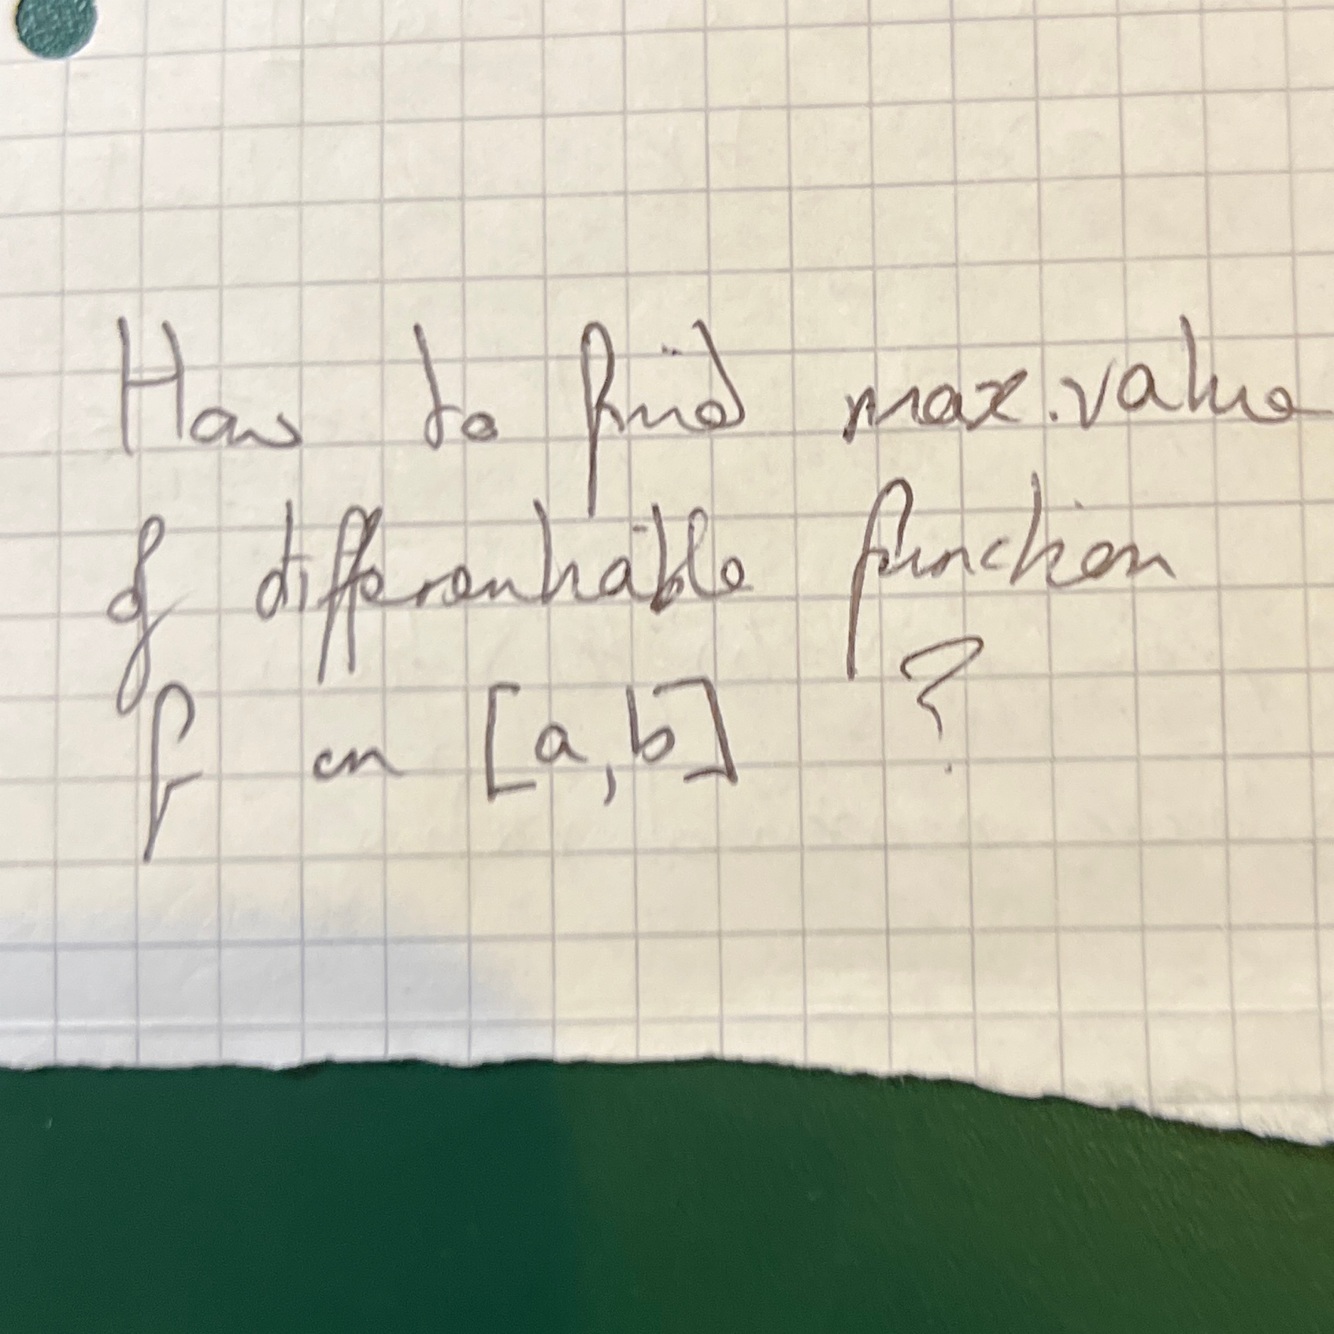 How to find max. value
of differentiable function
f on [a, b] ?